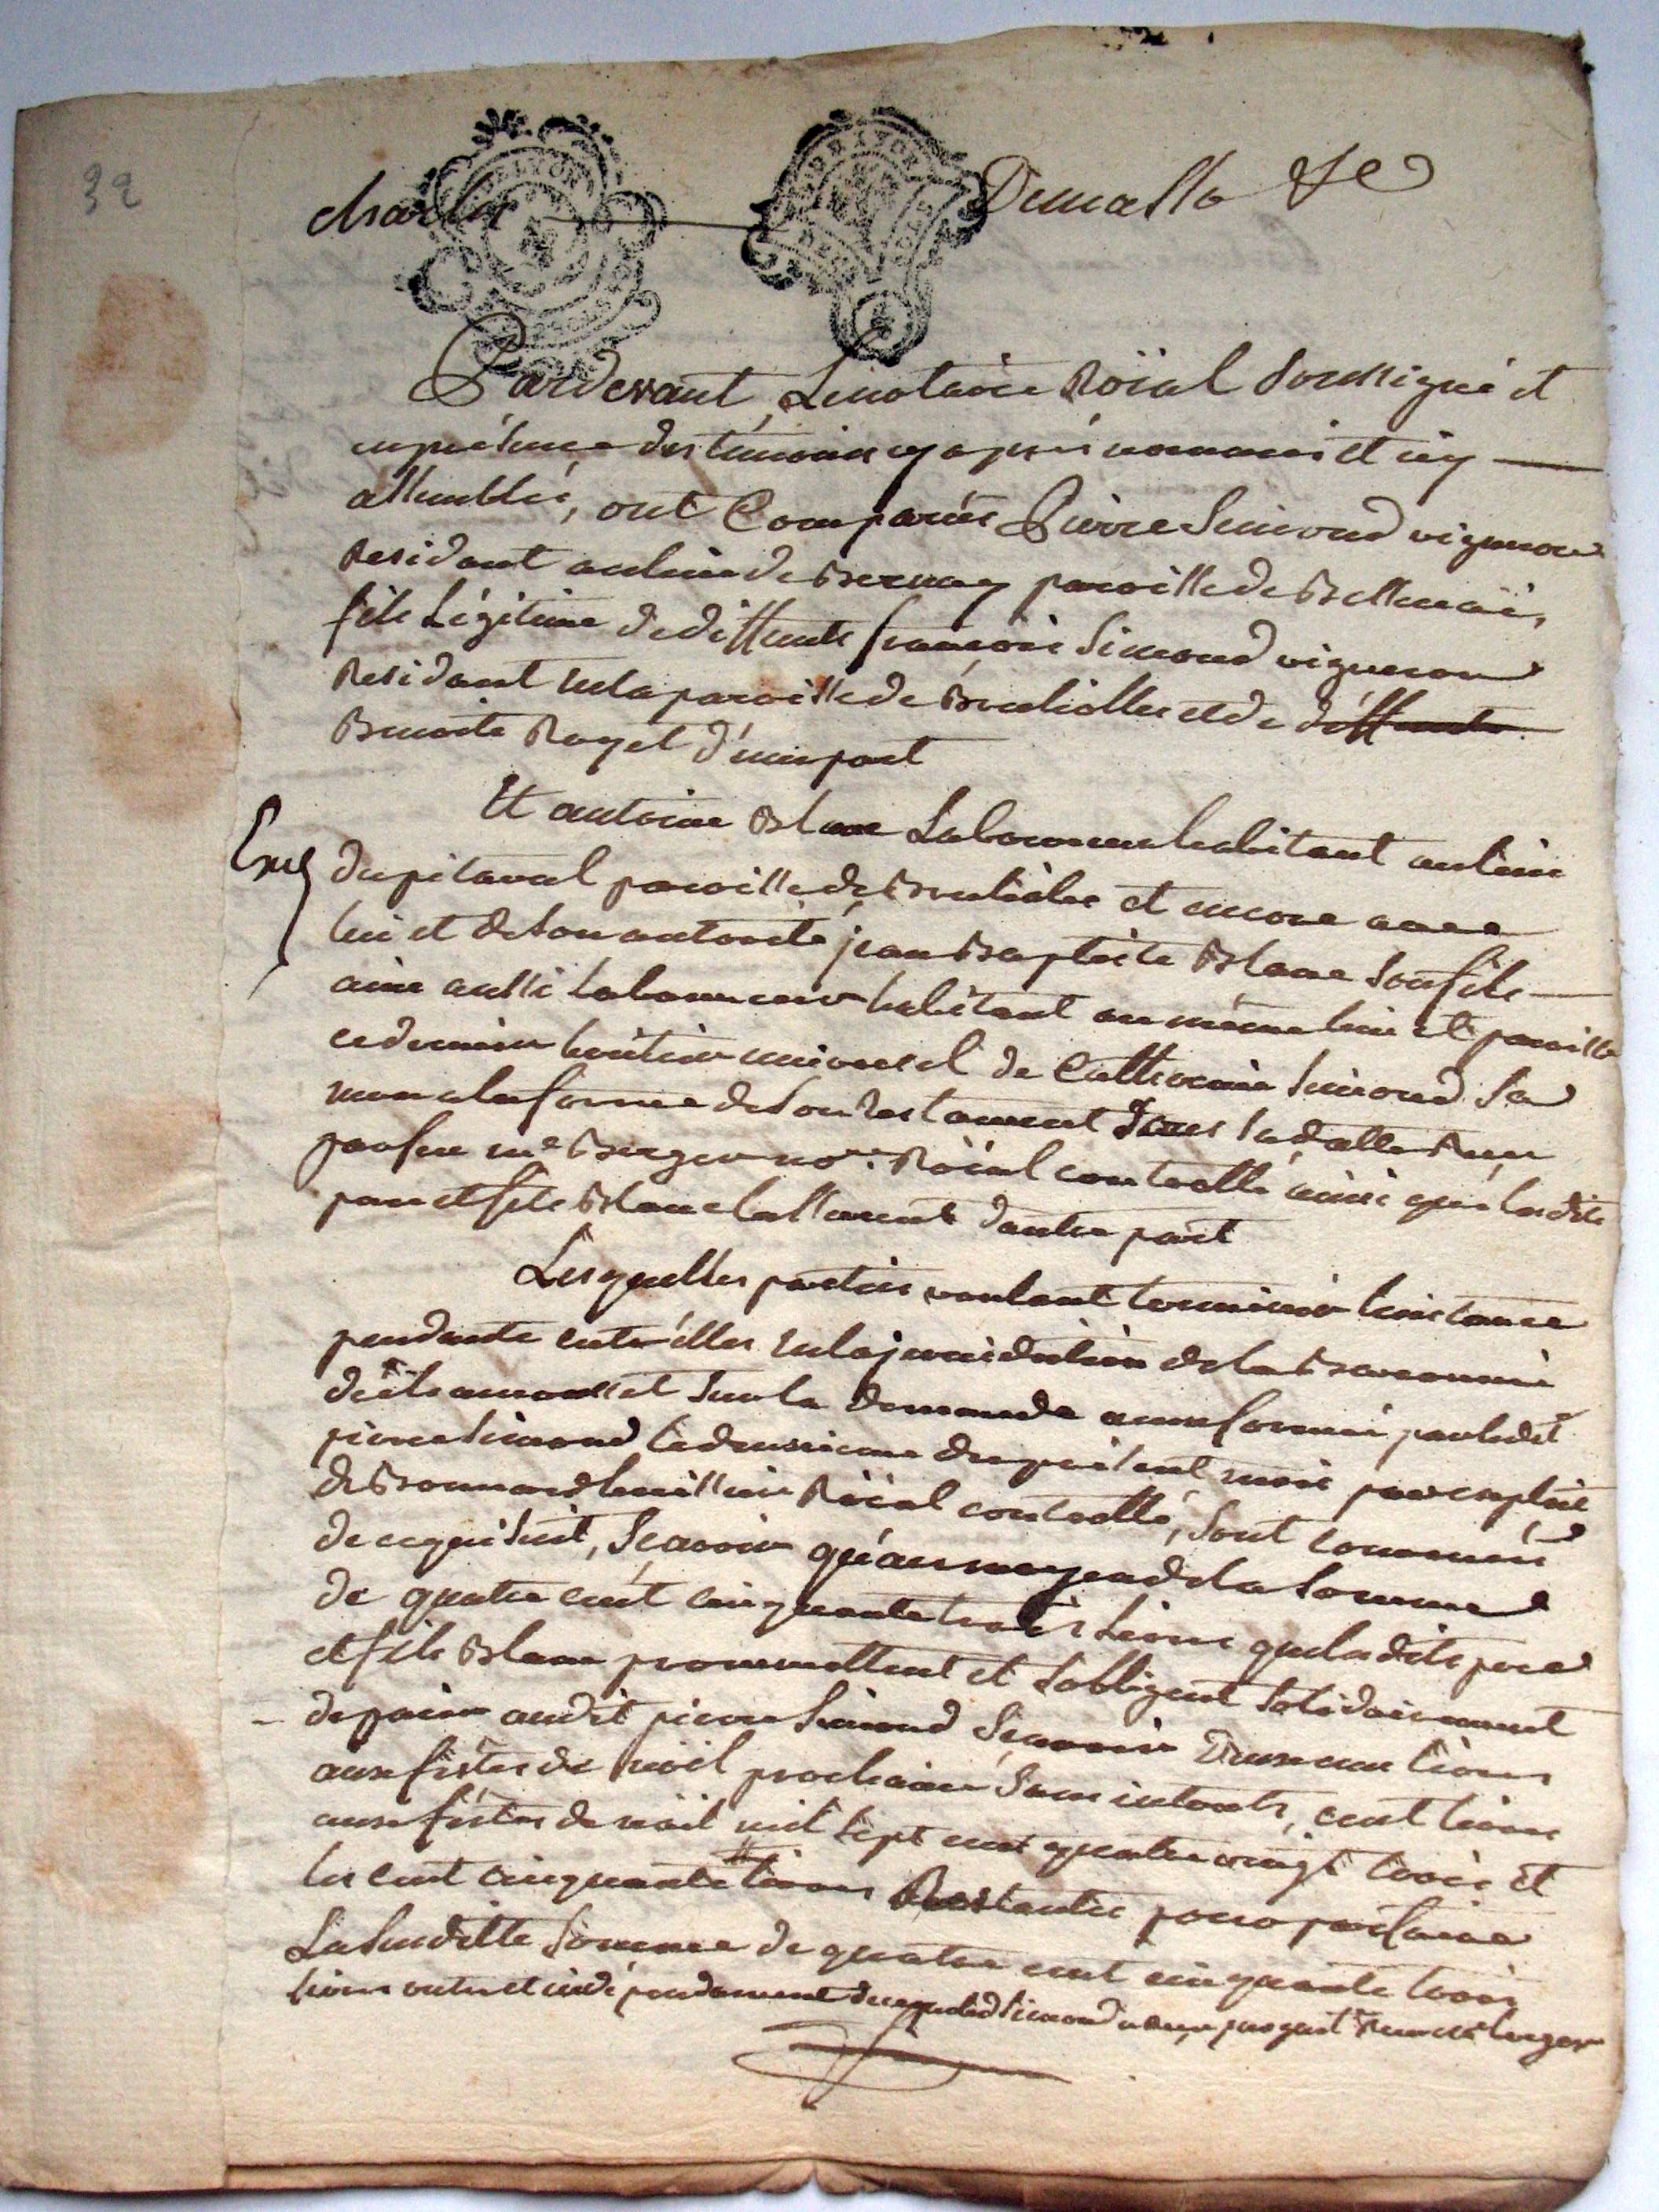 32
Pardevant Le notaire Roïal soussigné et
en présence des témoins cy après nommés et icy
assemblés, ont Comparus Pierre Simond vigneron
Residant au lieu de Bernay paroisse de
fils Légitime de deffunts françois Simond vigneron
Residant en la paroisse de Brulliolles et de deffunte
Benoite d'une part
Et antoine Blanc Laboureur habitant au lieu
du pitaval paroisse de Brulioles et encore avec
lui et de son autorité jean Baptiste Blanc son fils
ainé aussi Laboureur habitant au même lieu et paroisse
ce dernier héritier universel de Catherine Simond sa
mere a la forme de son testament sa datte Reçu
par feu me Berger nore. Roïal controllé ainsi que lesdits
pere et fils Blanc d'autre part
Lesquelles parties voulant terminer l'instance
pendante entr'elles en la jurisdiction de la Baronnie
et sur la demande formée par ledit
pierre Simond du présent mois par exploit
de huissier Roïal controllé, sont convenus
de ce qui suit, Scavoir qu'au moyen de la somme
de quatre cent cinquante trois Livres que lesdits pere
et fils Blanc promettent et s'obligent solidairement
de païer audit pierre Simond Scavoir livres
aux fêtes de noël prochaine sans interets, cent livres
aux fêtes de noël mil sept cent quatre vingt trois et
les cent cinquante livres Restantes pour parfaire
La susditte somme de quatre cent cinquante trois
livres outre et indépendamment de ce que led Simond